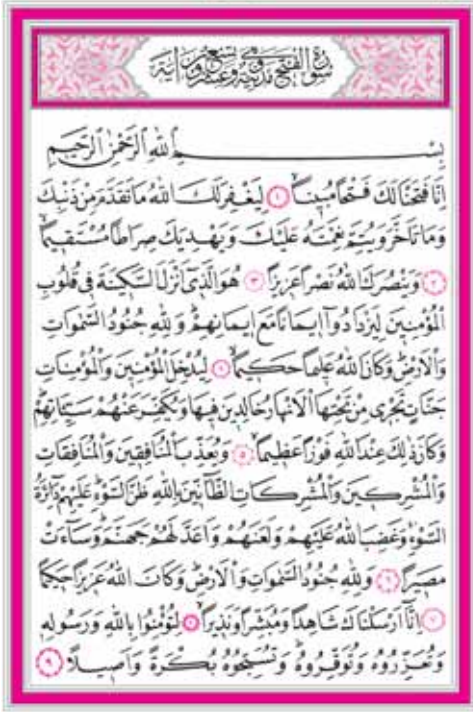 سورة الفتح مدنية وهي تسع وعشرون آية
بِسْمِ اللّٰهِ الرَّحْمٰنِ الرَّحٖيمِ
اِنَّا فَتَحْنَا لَكَ فَتْحًا مُبٖينًا ﴿١﴾ لِيَغْفِرَ لَكَ اللّٰهُ مَا تَقَدَّمَ مِنْ ذَنْبِكَ
وَمَا تَاَخَّرَ وَيُتِمَّ نِعْمَتَهُ عَلَيْكَ وَيَهْدِيَكَ صِرَاطًا مُسْتَقٖيمًا
﴿٢﴾ وَيَنْصُرَكَ اللّٰهُ نَصْرًا عَزٖيزًا ﴿٣﴾ هُوَ الَّذٖى اَنْزَلَ السَّكٖينَةَ فٖى قُلُوبِ
الْمُؤْمِنٖينَ لِيَزْدَادُوا اٖيمَانًا مَعَ اٖيمَانِهِمْ وَلِلّٰهِ جُنُودُ السَّمٰوَاتِ
وَالْاَرْضِ وَكَانَ اللّٰهُ عَلٖيمًا حَكٖيمًا ﴿٤﴾ لِيُدْخِلَ الْمُؤْمِنٖينَ وَالْمُؤْمِنَاتِ
جَنَّاتٍ تَجْرٖى مِنْ تَحْتِهَا الْاَنْهَارُ خَالِدٖينَ فٖيهَا وَيُكَفِّرَ عَنْهُمْ سَيِّـَٔاتِهِمْ
وَكَانَ ذٰلِكَ عِنْدَ اللّٰهِ فَوْزًا عَظٖيمًا ﴿٥﴾ وَيُعَذِّبَ الْمُنَافِقٖينَ وَالْمُنَافِقَاتِ
وَالْمُشْرِكٖينَ وَالْمُشْرِكَاتِ الظَّٓانّٖينَ بِاللّٰهِ ظَنَّ السَّوْءِ عَلَيْهِمْ دَٓائِرَةُ
السَّوْءِ وَغَضِبَ اللّٰهُ عَلَيْهِمْ وَلَعَنَهُمْ وَاَعَدَّ لَهُمْ جَهَنَّمَ وَسَٓاءَتْ
مَصٖيرًا ﴿٦﴾ وَلِلّٰهِ جُنُودُ السَّمٰوَاتِ وَالْاَرْضِ وَكَانَ اللّٰهُ عَزٖيزًا حَكٖيمًا
﴿٧﴾ اِنَّا اَرْسَلْنَاكَ شَاهِدًا وَمُبَشِّرًا وَنَذٖيرًا ﴿٨﴾ لِتُؤْمِنُوا بِاللّٰهِ وَرَسُولِهٖ
وَتُعَزِّرُوهُ وَتُوَقِّرُوهُ وَتُسَبِّحُوهُ بُكْرَةً وَاَصٖيلًا ﴿٩﴾